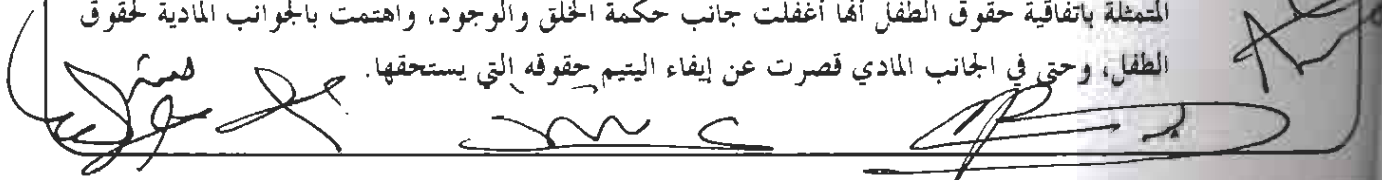 المتمثلة باتفاقية حقوق الطفل أنها أغفلت جانب حكمة الخلق والوجود، واهتمت بالجوانب المادية لحقوق
الطفل، وحتى في الجانب المادي قصرت عن إيفاء اليتيم حقوقه التي يستحقها.